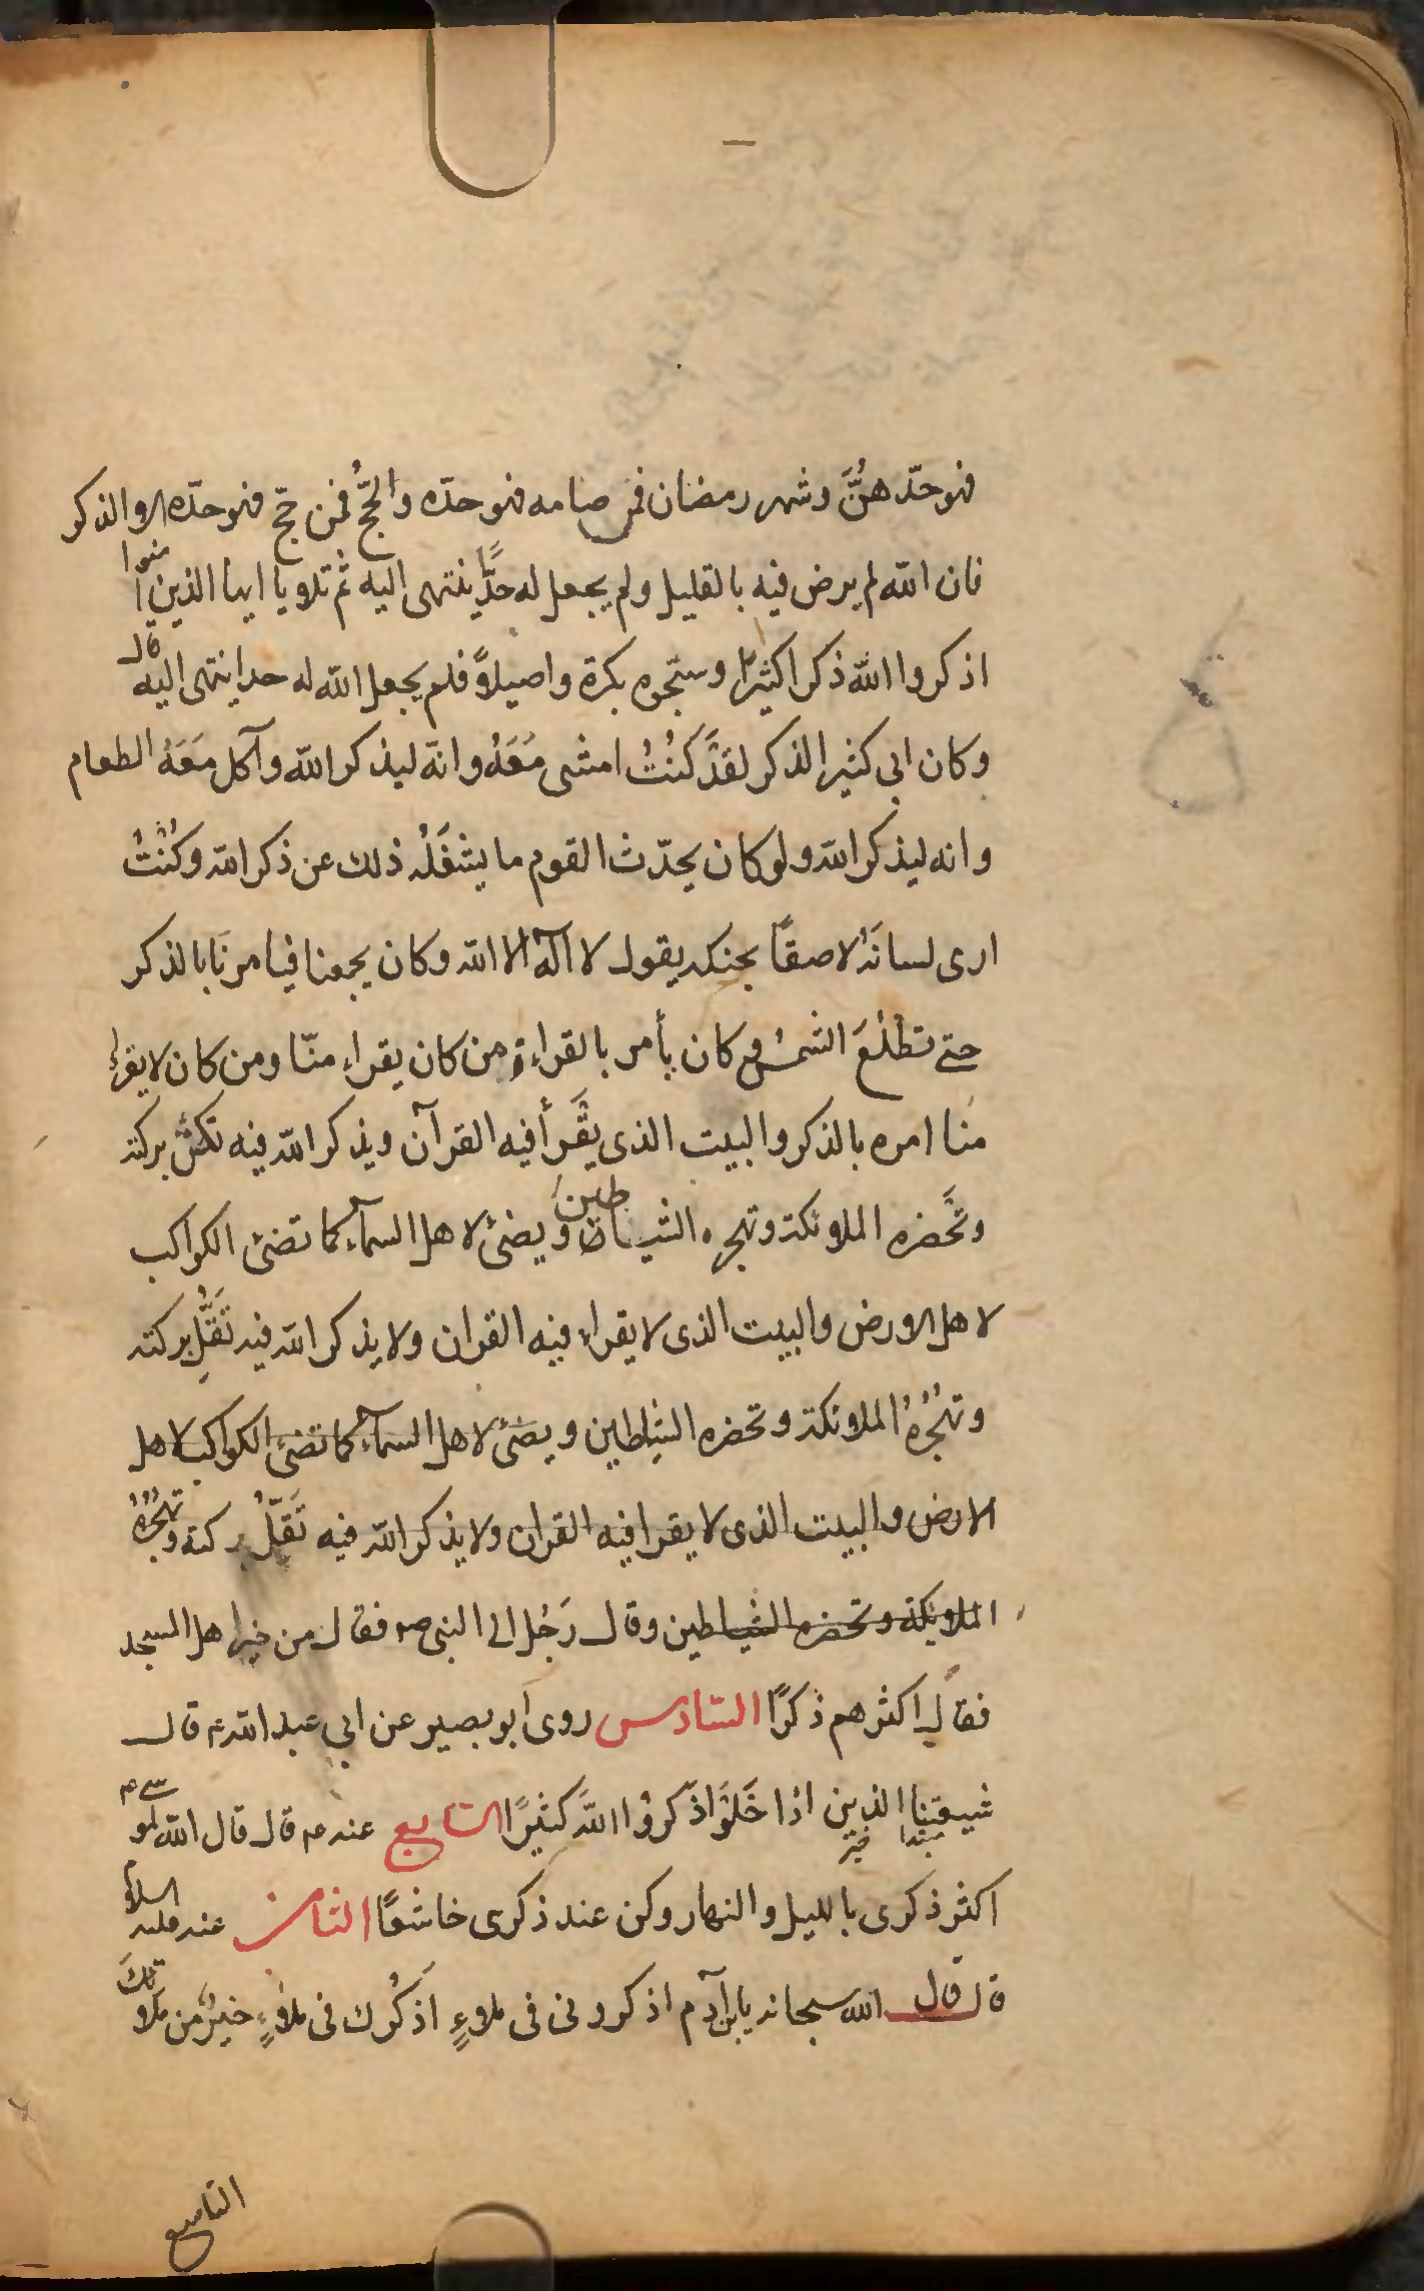 فهو حدّهنَّ وشهر رمضان فمن صامه فهو حدّه والحجُّ فمن حجّ فهو حدّه الا والذكر
فان الله لم يرض فيه بالقليل ولم يجعل له حدًّا ينتهى اليه ثم تلا ويا ايها الذين آمنوا
اذكروا الله ذكرا كثيرًا وسبّحوه بكرة واصيلاً فلم يجعل الله له حدا ينتهى اليه قال
وكان ابى كثير الذكر لقد كنْتُ امشى مَعَهُ وانّه ليذكر الله وآكل مَعَهُ الطعام
وانه ليذكر الله ولو كان يحدّث القوم ما يشغَلُه ذلك عن ذكر الله وكُنْتُ
ارى لسانَهُ لاصقًا بحنكه يقول لا اله الا الله وكان يجمعنا فيامرنَا بالذكر
حتى تطلُعَ الشمسُ وكان يأمر بالقراءة من كان يقراء منّا ومن كان لا يقراء
منا امره بالذكر والبيت الذى يقْرَأ فيه القرآن ويذكر الله فيه تكثُر بركته
وتحْضره الملائكة وتهجره الشياطين ويضئ لاهل السمآء كما تضئ الكواكب
لاهل الارض والبيت الذى لا يقراء فيه القران ولا يذكر الله فيه تَقَلُّ بركته
وتهْجُرهُ الملائكة وتحضره الشياطين ويضئ لاهل السمآء كما تضئ الكواكب لاهل
الارض والبيت الذى لا يقرا فيه القران ولا يذكر الله فيه تَقَلّ بركته وتهجُرُهُ
الملائكة وتحضره الشياطين وقال رَجُل الى النبى ص فقال من خير اهل المسجد
فقال اكثرهم ذكرًا السّادس روى ابو بصير عن ابى عبد الله ع قال
شيعتنا الذين اذا خَلَوْا ذكروا اللهَ كثيرًا السّابع عنه ع قال قال الله لموسى ع
مبتدا خبر
اكثر ذكرى بالليل والنهار وكن عند ذكرى خاشعًا الثامن عنه عليه السلام
قال قال الله سبحانه يا بن آدم اذكرونى فى ملاءٍ اَذكُرك فى ملاءٍ خيرٌ من ملائك
التاسع